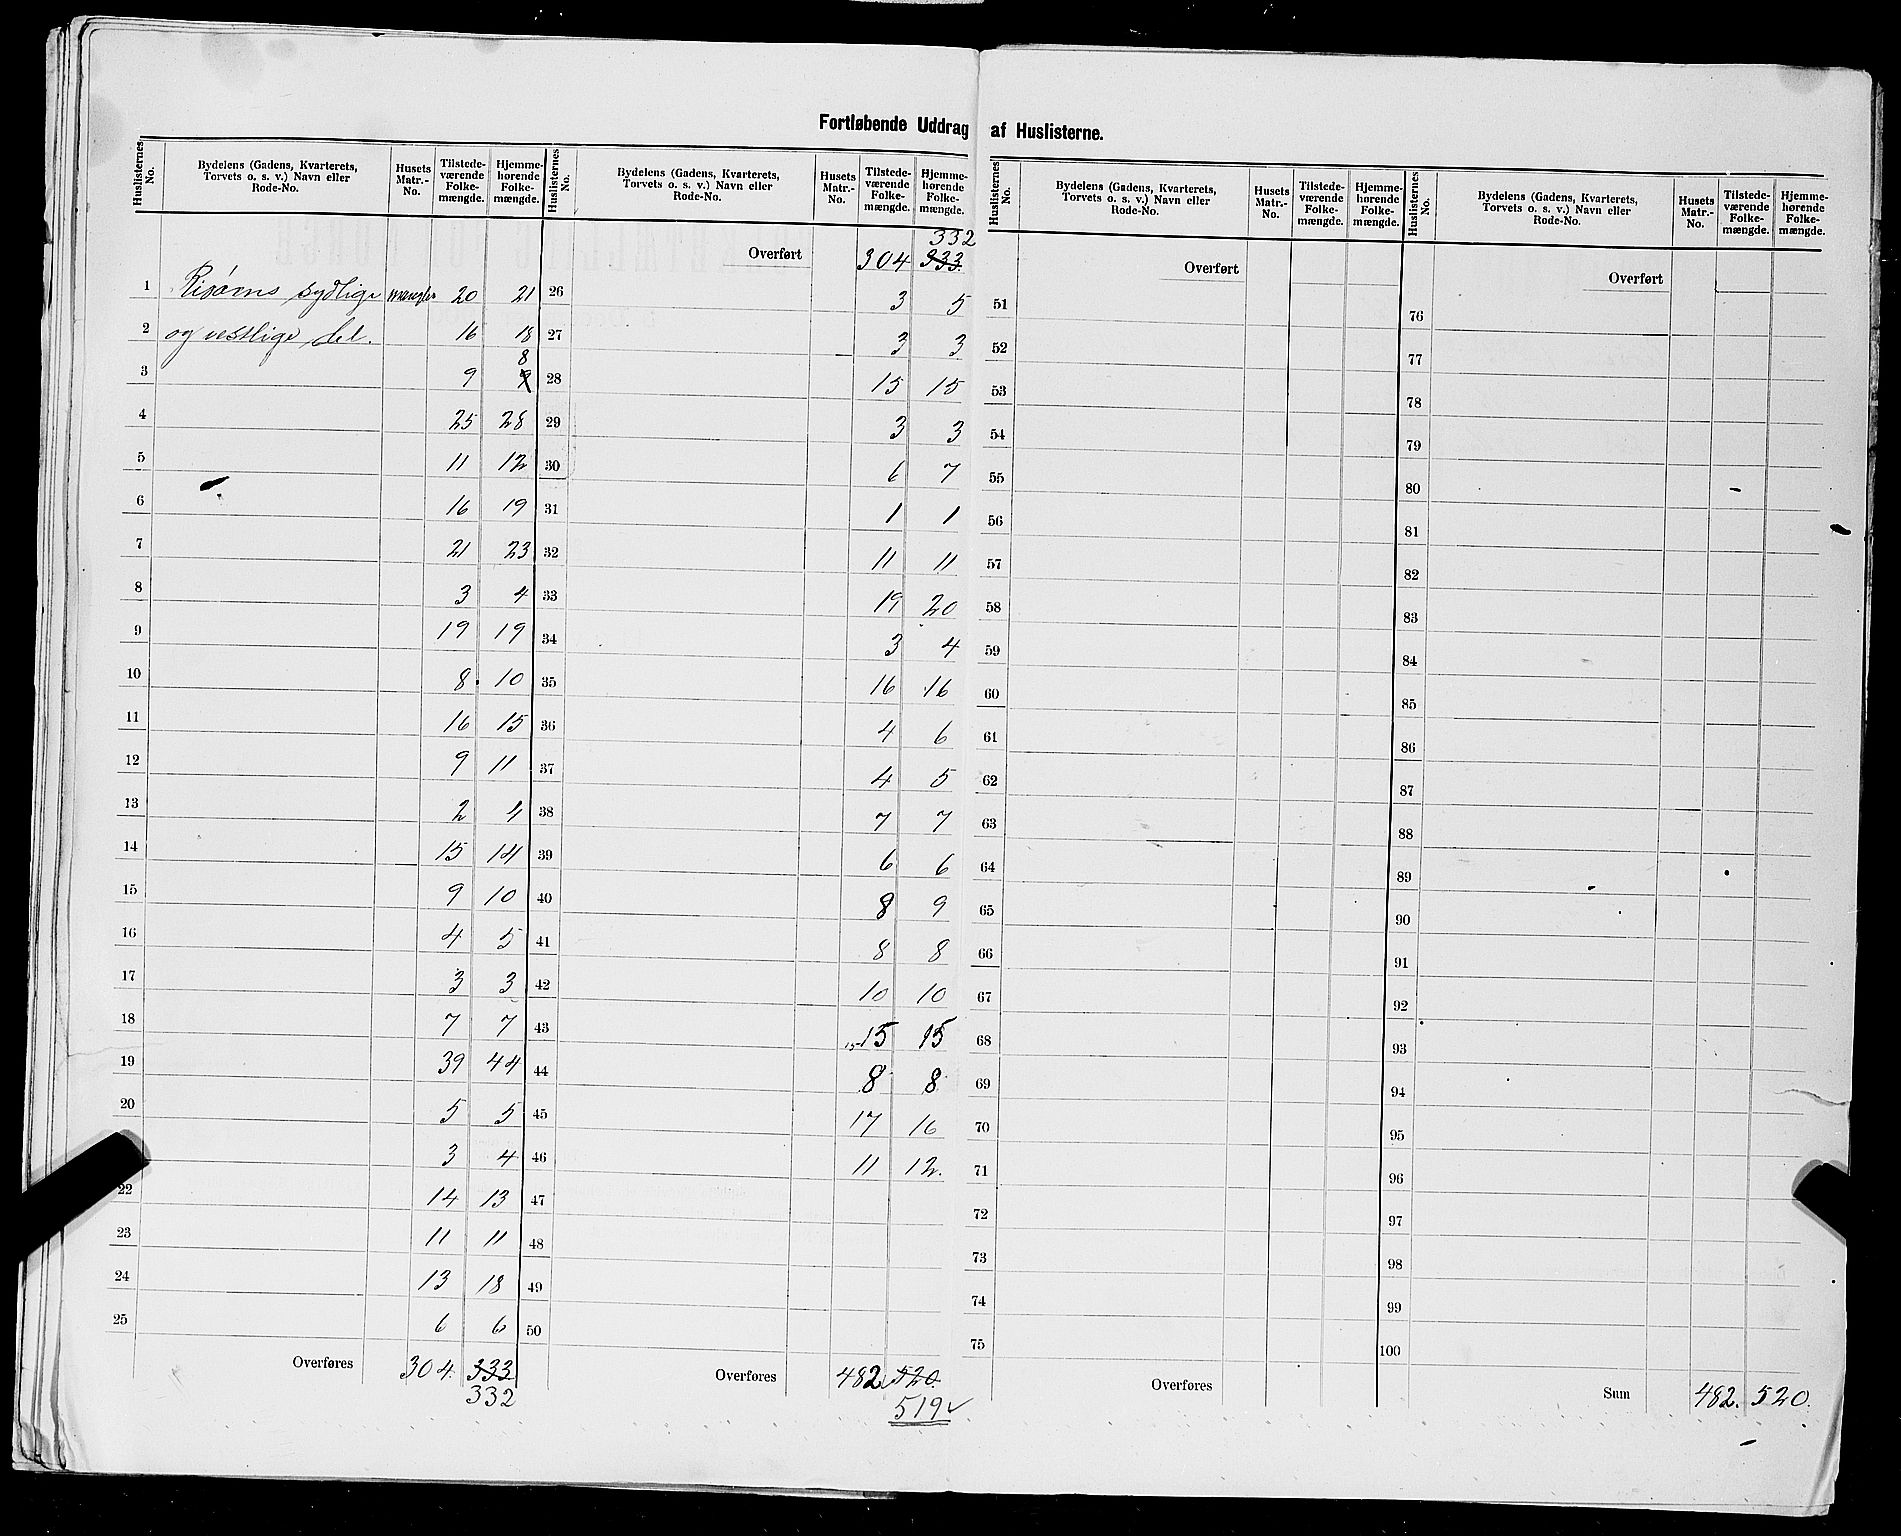 Fortløbende Uddrag af Huslisterne.
Huslisternes No. | Bydelens (Gadens, Kvarterets, Torvets o. s. v.) Navn eller Rode-No. | Husets Matr.-No. | Tilstedeværende Folkemængde. | Hjemmehørende Folkemængde.
1 Risørns sydlige mangler 20 21
2 og vestlige del. 16 18
3 9 9 8
4 25 28
5 11 12
6 16 19
7 21 23
8 3 4
9 19 19
10 8 10
11 16 15
12 9 11
13 2 4
14 15 14
15 9 10
16 4 5
17 3 3
18 7 7
19 39 44
20 5 5
3 4
22 14 13
23 11 11
24 13 18
25 6 6
Overføres 304. 333
332
Huslisternes No. | Bydelens (Gadens, Kvarterets, Torvets o. s. v.) Navn eller Rode-No. | Husets Matr.-No. | Tilstedeværende Folkemængde. | Hjemmehørende Folkemængde.
332
Overført 304 333.
26 3 5
27 3 3
28 15 15
29 3 3
30 6 7
31 1 1
32 11 11
33 19 20
34 3 4
35 16 16
36 4 6
37 4 5
38 7 7
39 6 6
40 8 9
41 8 8
42 10 10
43 15 15 15
44 8 8
45 17 16
46 11 12.
47
48
49
50
Overføres 482 520.
519 ✓
Huslisternes No. | Bydelens (Gadens, Kvarterets, Torvets o. s. v.) Navn eller Rode-No. | Husets Matr.-No. | Tilstedeværende Folkemængde. | Hjemmehørende Folkemængde.
Overført
51
52
53
54
55
56
57
58
59
60
61
62
63
64
65
66
67
68
69
70
71
72
73
74
75
Overføres
Huslisternes No. | Bydelens (Gadens, Kvarterets, Torvets o. s. v.) Navn eller Rode-No. | Husets Matr.-No. | Tilstedeværende Folkemængde. | Hjemmehørende Folkemængde.
Overført
76
77
78
79
80
81
82
83
84
85
86
87
88
89
90
91
92
93
94
95
96
97
98
99
100
Sum 482. 520.